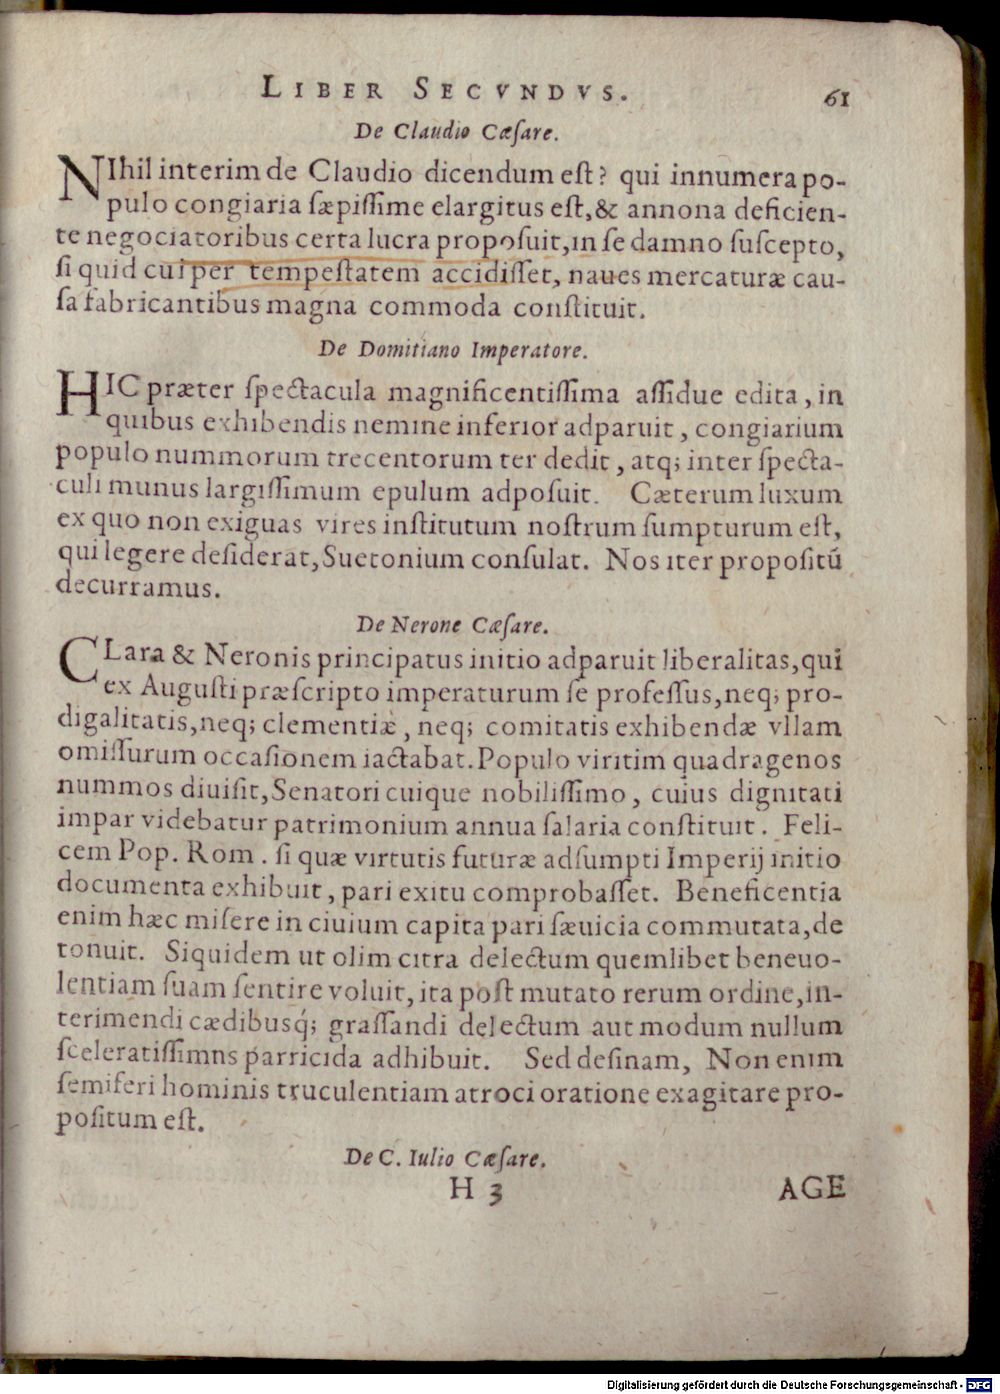 LIBER SECVNDVS. 61
De Claudio Cæſare.
NIhil interim de Claudio dicendum eſt? qui innumera po-
pulo congiaria ſæpiſſime elargitus eſt, & annona deficien-
te negociatoribus certa lucra propoſuit, in ſe damno ſuſcepto,
ſi quid cui per tempeſtatem accidiſſet, naues mercaturæ cau-
ſa fabricantibus magna commoda conſtituit.
De Domitiano Imperatore.
HIC præter ſpectacula magnificentiſſima aſſidue edita, in
quibus exhibendis nemine inferior adparuit, congiarium
populo nummorum trecentorum ter dedit, atq; inter ſpecta-
culi munus largiſſimum epulum adpoſuit. Cæterum luxum
ex quo non exiguas vires inſtitutum noſtrum ſumpturum eſt,
qui legere deſiderat, Suetonium conſulat. Nos iter propoſitū
decurramus.
De Nerone Cæſare.
CLara & Neronis principatus initio adparuit liberalitas, qui
ex Auguſti præſcripto imperaturum ſe profeſſus, neq; pro-
digalitatis, neq; clementiæ, neq; comitatis exhibendæ vllam
omiſſurum occaſionem iactabat. Populo viritim quadragenos
nummos diuiſit, Senatori cuique nobiliſſimo, cuius dignitati
impar videbatur patrimonium annua ſalaria conſtituit. Feli-
cem Pop. Rom. ſi quæ virtutis futuræ adſumpti Imperij initio
documenta exhibuit, pari exitu comprobaſſet. Beneficentia
enim hæc miſere in ciuium capita pari ſæuicia commutata, de
tonuit. Siquidem ut olim citra delectum quemlibet beneuo-
lentiam ſuam ſentire voluit, ita poſt mutato rerum ordine, in-
terimendi cædibusq́; graſſandi delectum aut modum nullum
ſceleratiſſimns parricida adhibuit. Sed deſinam, Non enim
ſemiferi hominis truculentiam atroci oratione exagitare pro-
poſitum eſt.
De C. Iulio Cæſare.
H 3 AGE
Digitalisierung gefördert durch die Deutsche Forschungsgemeinschaft - DFG